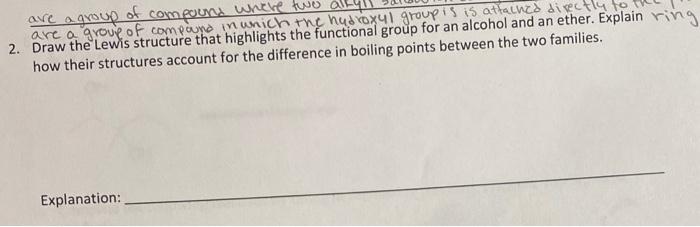 are a group of compound where two alkyl
are a group of compound in which the hydroxyl group is is attached directly to the
ring
2. Draw the Lewis structure that highlights the functional group for an alcohol and an ether. Explain
how their structures account for the difference in boiling points between the two families.
Explanation: